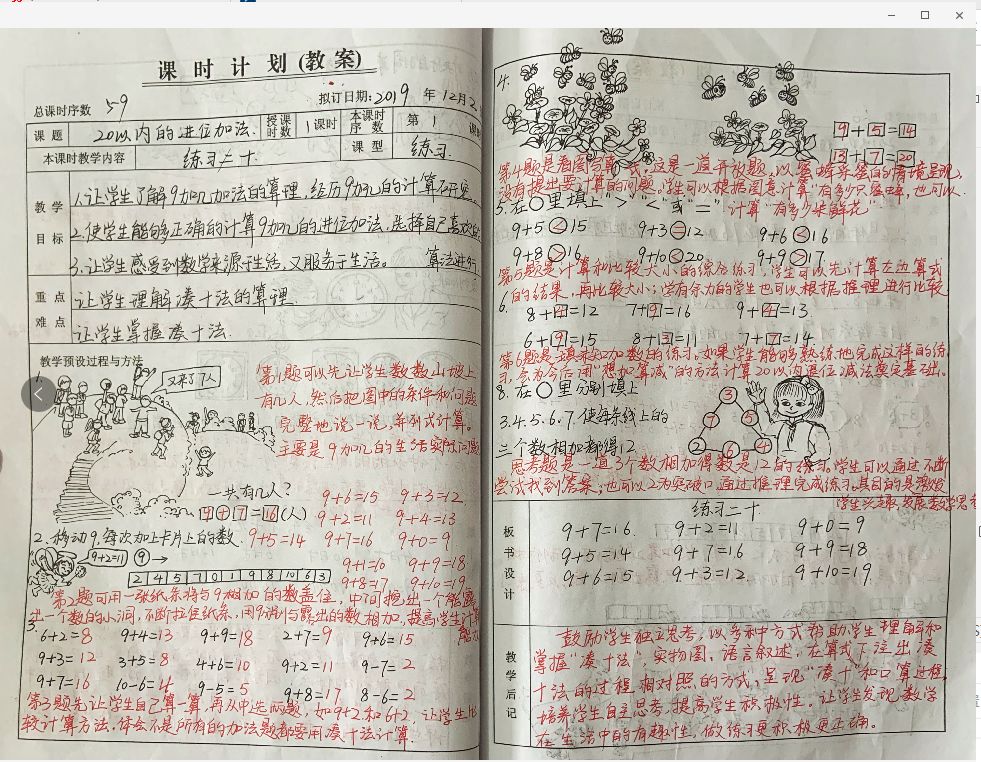 课时计划(教案)
总课时序数 59
拟订日期:2019年12月2
课题 20以内的进位加法. 授课时数 1课时 本课时序数 第1课时
本课时教学内容 练习二十. 课型 练习.
教学目标
1.让学生了解9加几加法的算理,经历9加几的计算
2.使学生能够正确的计算9加几的进位加法,选择自己喜欢的
算法进行
3.让学生感受到数学来源于生活,又服务于生活。
重点 让学生理解凑十法的算理.
难点 让学生掌握凑十法.
教学预设过程与方法
1.
又来了7人
第1题可以先让学生数数山坡上
有几人,然后把图中的条件和问题
完整地说一说,并列式计算。
主要是9加几的生活实际问题
一共有几人?
9+7=16(人)
9+6=15 9+3=12
9+2=11 9+4=13
2.移动9,每次加上卡片上的数. 9+5=14 9+7=16 9+0=9
9+2=11 9 →
9+1=10 9+9=18
2 4 5 7 0 1 9 8 10 6 3
9+8=17 9+10=19
第2题可用一张纸条将与9相加的数盖住,中间挖出一个能露
出一个数的小洞,不断拉住纸条,用9和与露出的数相加,提高学生计算
能力
3.
6+2=8 9+4=13 9+9=18 2+7=9 9+6=15
9+3=12 3+5=8 4+6=10 9+2=11 9-7=2
9+7=16 10-6=4 9-5=5 9+8=17 8-6=2
第3题先让学生自己算一算,再从中选两题,如9+2和6+2,让学生比
较计算方法,体会不是所有的加法题都要用凑十法计算.
4.
9+5=14
13+7=20
第4题是看图写算式,这是一道开放题,以蜜蜂采蜜的情境呈现,
没有提出要计算的问题。学生可以根据图意计算“有多少只蜜蜂,也可以
计算“有多少朵鲜花”
5.在○里填上“>”“<”或“=”
9+5<15 9+3=12 9+6<16
9+8>16 9+10<20 9+9>17
第5题是计算和比较大小的综合练习,学生可以先计算左边算式
的结果,再比较大小;学有余力的学生也可以根据推理进行比较
6.
8+4=12 7+9=16 9+4=13.
6+9=15 8+3=11 7+7=14
第6题是填未知加数的练习。如果学生能够熟练地完成这样的练
习,会为今后用“想加算减”的方法计算20以内退位减法奠定基础.
8.在○里分别填上
3.4.5.6.7.使每条线上的
三个数相加都得12.
3
7 5
2 6 4
思考题是一道3个数相加得数是12的练习.学生可以通过不断
尝试找到答案;也可以2为突破口通过推理完成练习.其目的是激发
学生兴趣,发展数学思考
板书设计
练习二十.
9+7=16. 9+2=11 9+0=9
9+5=14 9+7=16 9+9=18
9+6=15 9+3=12. 9+10=19.
教学后记
鼓励学生独立思考,以多种方式帮助学生理解和
掌握“凑十法”,实物图、语言叙述、在算式下注出凑
十法的过程相对照的方式,呈现“凑十”和口算过程,
培养学生自主思考,提高学生积极性。让学生发现数学
在生活中的有趣性,做练习更积极更正确。